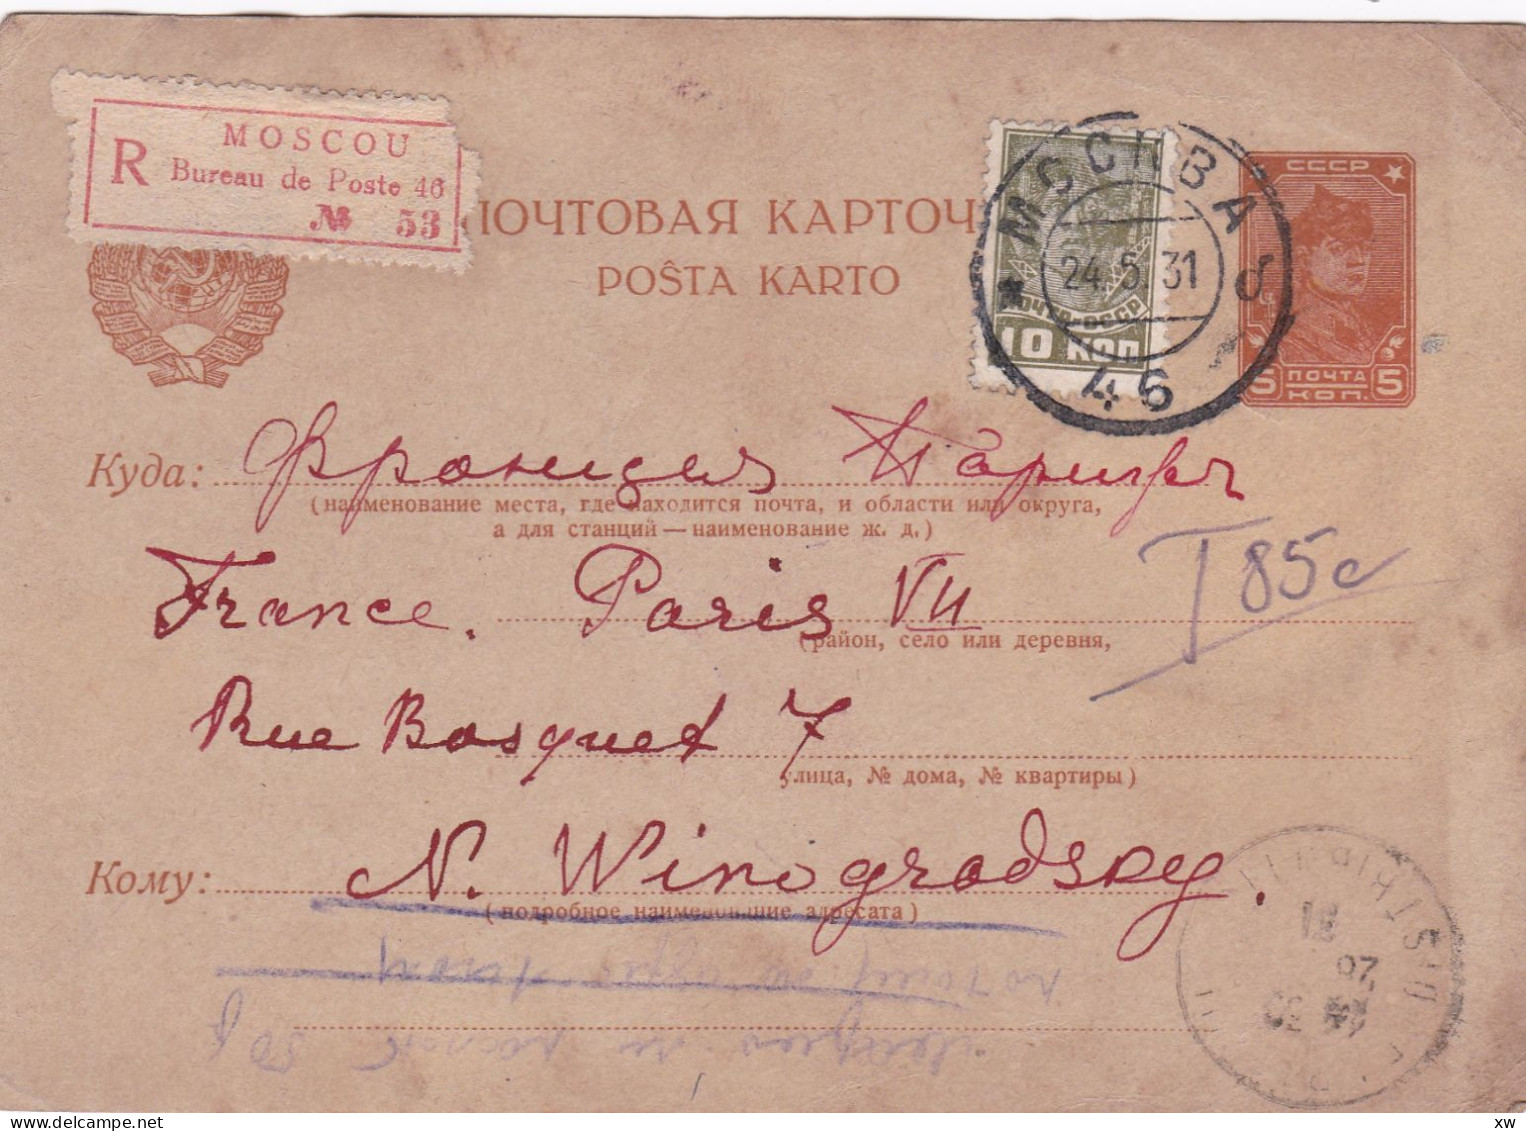 MOSCOU
R Bureau de Poste 46
№ 53
ПОЧТОВАЯ КАРТОЧ
POŜTA KARTO
МОСКВА
24.5.31
б
46
ПОЧТА-СССР
10 КОП
СССР
5 ПОЧТА 5
КОП.
Куда: Франция Париж
(наименование места, где находится почта, и области или округа,
а для станций — наименование ж. д.)
T 85c
France. Paris VII
(район, село или деревня,
Rue Bosquet 7
улица, № дома, № квартиры)
Кому: N. Winogradsky.
(подробное наименование адресата)
xw